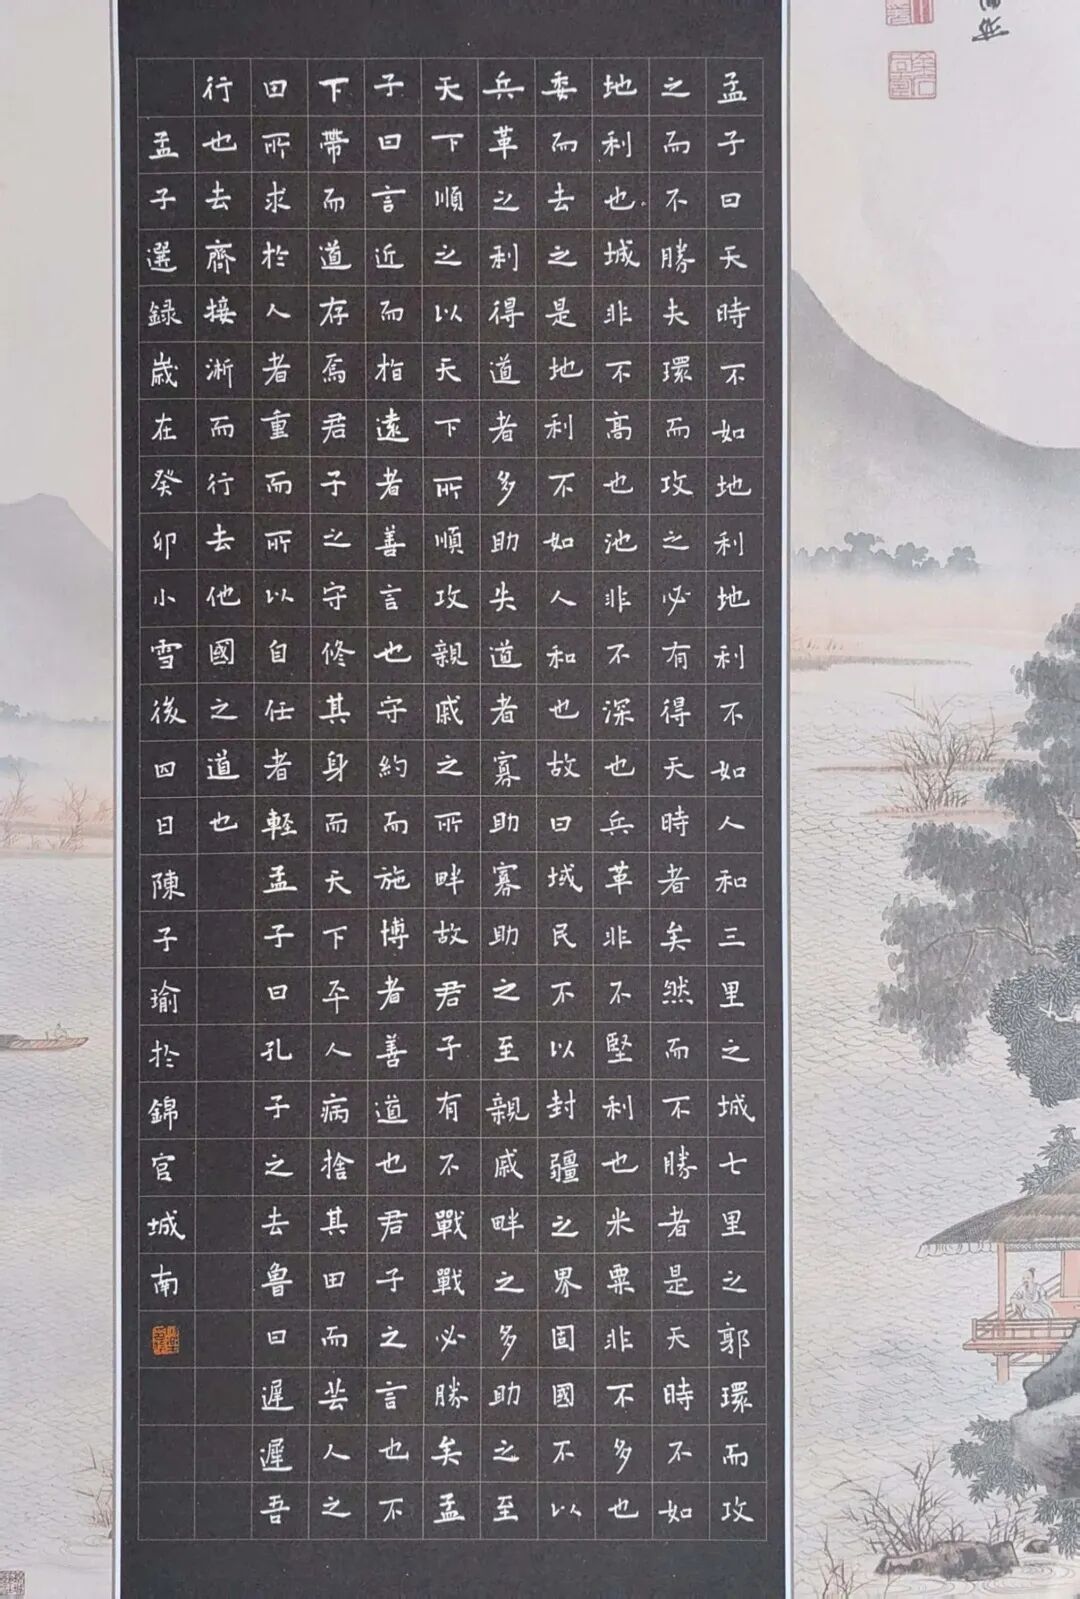 孟子曰天時不如地利地利不如人和三里之城七里之郭環而攻
之而不勝夫環而攻之必有得天時者矣然而不勝者是天時不如
地利也城非不高也池非不深也兵革非不堅利也米粟非不多也
委而去之是地利不如人和也故曰域民不以封疆之界固國不以
兵革之利得道者多助失道者寡助寡助之至親戚畔之多助之至
天下順之以天下所順攻親戚之所畔故君子有不戰戰必勝矣孟
子曰言近而指遠者善言也守約而施博者善道也君子之言也不
下帶而道存焉君子之守修其身而天下平人病捨其田而芸人之
田所求於人者重而所以自任者輕孟子曰孔子之去魯曰遲遲吾
行也去齊接淅而行去他國之道也
孟子選録歲在癸卯小雪後四日陳子瑜於錦官城南